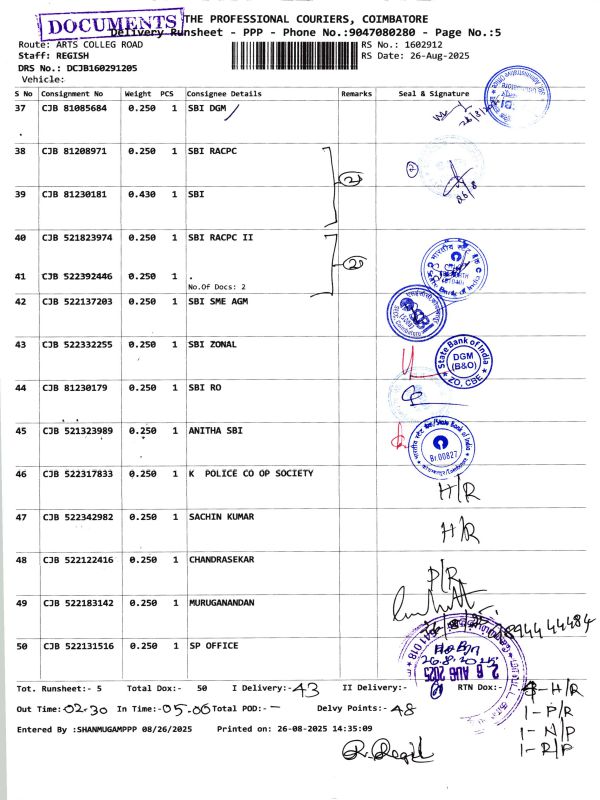 DOCUMENTS
THE PROFESSIONAL COURIERS, COIMBATORE
Delivery Runsheet - PPP - Phone No.:9047080280 - Page No.:5
Route: ARTS COLLEG ROAD
RS No.: 1602912
Staff: REGISH
RS Date: 26-Aug-2025
DRS No.: DCJB160291205
Vehicle:
S No Consignment No Weight PCS Consignee Details Remarks Seal & Signature
37 CJB 81085684 0.250 1 SBI DGM
38 CJB 81208971 0.250 1 SBI RACPC
39 CJB 81230181 0.430 1 SBI
40 CJB 521823974 0.250 1 SBI RACPC II
41 CJB 522392446 0.250 1 .
No.Of Docs: 2
42 CJB 522137203 0.250 1 SBI SME AGM
SBI
43 CJB 522332255 0.250 1 SBI ZONAL
State Bank of India
DGM
(B&O)
ZO, CBE
44 CJB 81230179 0.250 1 SBI RO
45 CJB 521323989 0.250 1 ANITHA SBI
State Bank of India
Br.00827
46 CJB 522317833 0.250 1 K POLICE CO OP SOCIETY
H/R
47 CJB 522342982 0.250 1 SACHIN KUMAR
H/R
48 CJB 522122416 0.250 1 CHANDRASEKAR
P/R
49 CJB 522183142 0.250 1 MURUGANANDAN
50 CJB 522131516 0.250 1 SP OFFICE
26.8.2025
2 6 AUG 2025
Tot. Runsheet:- 5 Total Dox:- 50 I Delivery:- 43 II Delivery:- RTN Dox:-
Out Time:- 02-30 In Time:- 05-00 Total POD:- — Delvy Points:- 48
Entered By :SHANMUGAMPPP 08/26/2025 Printed on: 26-08-2025 14:35:09
H/R
1- P/R
1- N/P
1- R/P